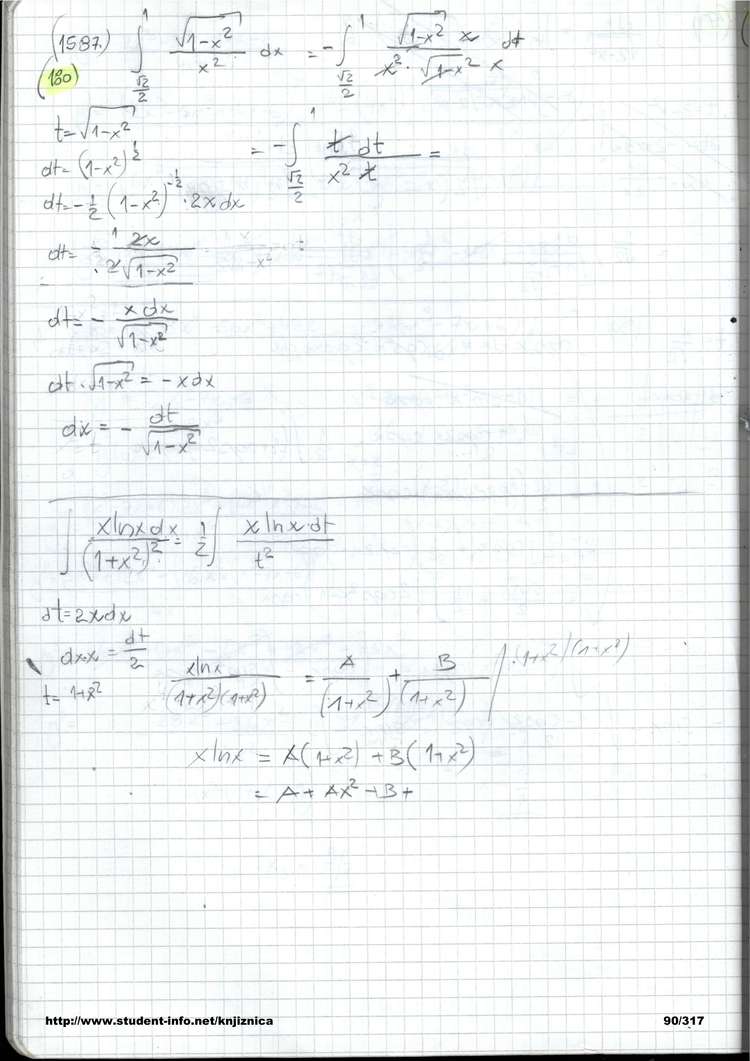 (1587.) ∫_{√2/2}^{1} √(1-x²) / x² dx = -∫_{√2/2}^{1} √(1-x²) x / (x² · √(1-x²) x) dt
(180)
t = √(1-x²)
= -∫_{√2/2}^{1} t dt / (x² t) =
dt = (1-x²)^{1/2}
dt = -1/2 (1-x²)^{-1/2} · 2x dx
dt = - 1 2x / (· 2√(1-x²))
dt = - x dx / √(1-x²)
dt · √(1-x²) = -x dx
dx = - dt / √(1-x²)
∫ x ln x dx / (1+x²)² = 1/2 ∫ x ln x · dt / t²
dt = 2x dx
dx·x = dt/2
t = 1+x²
x ln x / ((1+x²)(1+x²)) = A / (1+x²) + B / (1+x²) / ·(1+x²)(1+x²)
x ln x = A(1+x²) + B(1+x²)
= A + Ax² + B +
http://www.student-info.net/knjiznica
90/317